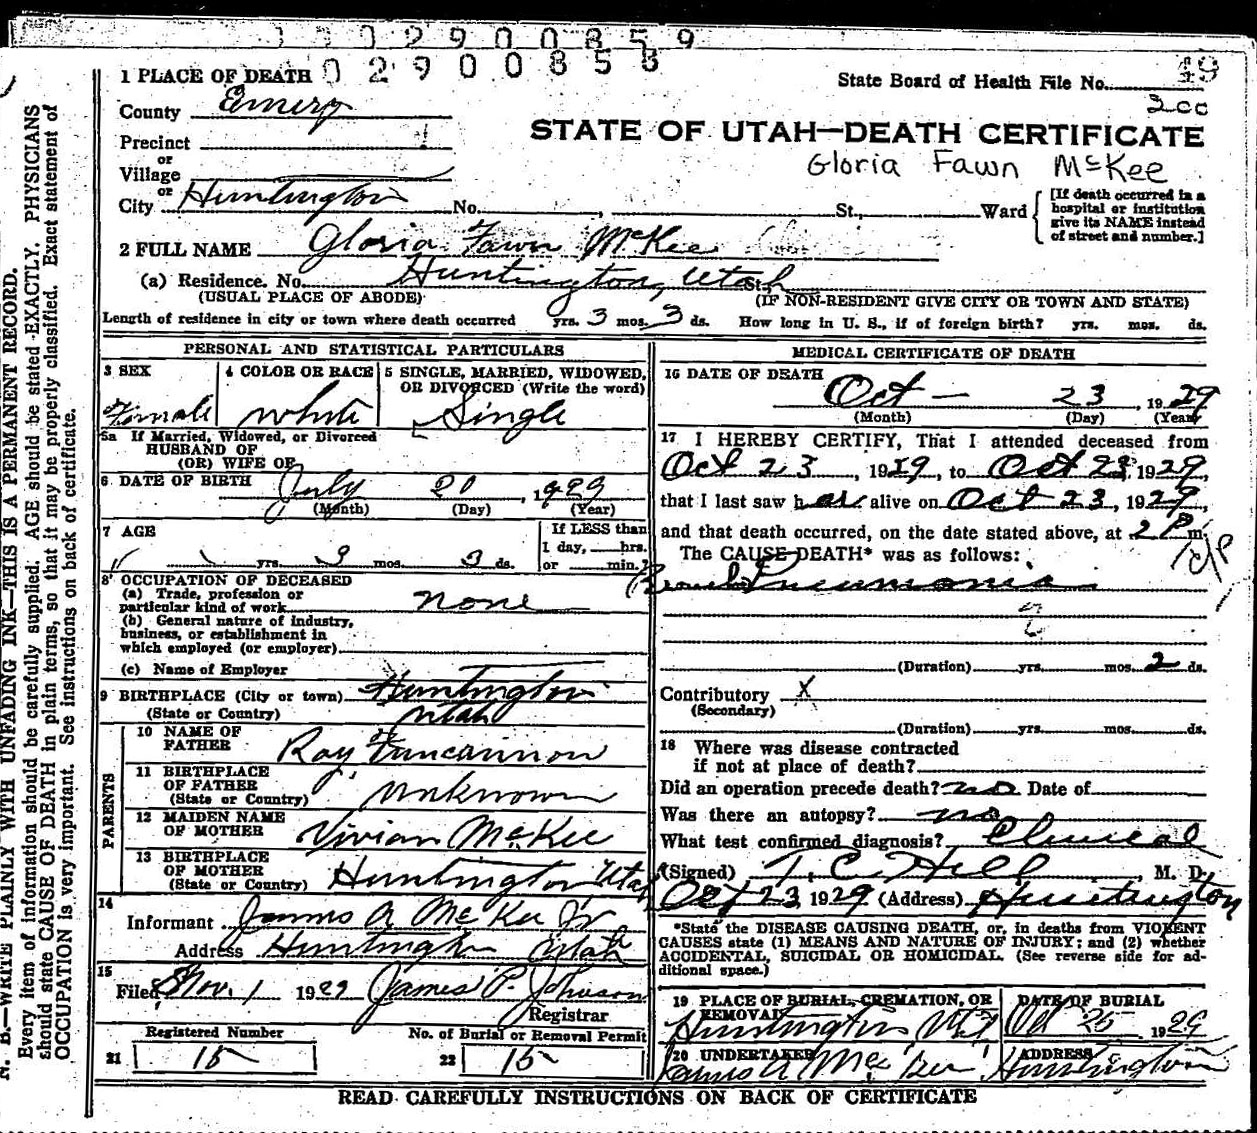 0 2 9 0 0 8 5 9
0 2 9 0 0 8 5 8
49
1 PLACE OF DEATH
State Board of Health File No.
County Emery
200
STATE OF UTAH—DEATH CERTIFICATE
Precinct
or
Gloria Fawn McKee
Village
or
City Huntington No. , St., Ward
[If death occurred in a hospital or institution give its NAME instead of street and number.]
2 FULL NAME Gloria Fawn McKee
(a) Residence. No. Huntington, Utah St.
(USUAL PLACE OF ABODE) (IF NON-RESIDENT GIVE CITY OR TOWN AND STATE)
Length of residence in city or town where death occurred yrs. 3 mos. 3 ds. How long in U. S., if of foreign birth? yrs. mos. ds.
PERSONAL AND STATISTICAL PARTICULARS
3 SEX Female
4 COLOR OR RACE White
5 SINGLE, MARRIED, WIDOWED, OR DIVORCED (Write the word) Single
5a If Married, Widowed, or Divorced
HUSBAND OF
(OR) WIFE OF
6 DATE OF BIRTH July 20, 1929
(Month) (Day) (Year)
7 AGE
yrs. 3 mos. 3 ds.
If LESS than
1 day, hrs.
or min.?
8 OCCUPATION OF DECEASED
(a) Trade, profession or
particular kind of work none
(b) General nature of industry,
business, or establishment in
which employed (or employer)
(c) Name of Employer
9 BIRTHPLACE (City or town) Huntington
(State or Country) Utah
PARENTS
10 NAME OF
FATHER Roy
11 BIRTHPLACE
OF FATHER
(State or Country) Unknown
12 MAIDEN NAME
OF MOTHER Vivian McKee
13 BIRTHPLACE
OF MOTHER
(State or Country) Huntington Utah
14
Informant James A McKee Jr
Address Huntington Utah
15
Filed Nov. 1 1929 James P. Johnson
Registrar
Registered Number No. of Burial or Removal Permit
21 15 22 15
MEDICAL CERTIFICATE OF DEATH
16 DATE OF DEATH
Oct — 23, 1929
(Month) (Day) (Year)
17 I HEREBY CERTIFY, That I attended deceased from
Oct 23, 1929, to Oct 23, 1929,
that I last saw her alive on Oct 23, 1929,
and that death occurred, on the date stated above, at 2 P m.
The CAUSE DEATH* was as follows:
Broncho Pneumonia
(Duration) yrs. mos. 2 ds.
Contributory X
(Secondary)
(Duration) yrs. mos. ds.
18 Where was disease contracted
if not at place of death?
Did an operation precede death? no Date of
Was there an autopsy? no
What test confirmed diagnosis? Clinical
(Signed) T. C. Hill, M. D.
Oct 23, 1929 (Address) Huntington
*State the DISEASE CAUSING DEATH, or, in deaths from VIOLENT
CAUSES state (1) MEANS AND NATURE OF INJURY; and (2) whether
ACCIDENTAL, SUICIDAL OR HOMICIDAL. (See reverse side for ad-
ditional space.)
19 PLACE OF BURIAL, CREMATION, OR
REMOVAL
Huntington Utah
DATE OF BURIAL
Oct 25 1929
20 UNDERTAKER
James A McKee
ADDRESS
Huntington
READ CAREFULLY INSTRUCTIONS ON BACK OF CERTIFICATE
N. B.—WRITE PLAINLY WITH UNFADING INK—THIS IS A PERMANENT RECORD.
Every item of information should be carefully supplied. AGE should be stated EXACTLY. PHYSICIANS
should state CAUSE OF DEATH in plain terms, so that it may be properly classified. Exact statement of
OCCUPATION is very important. See instructions on back of certificate.